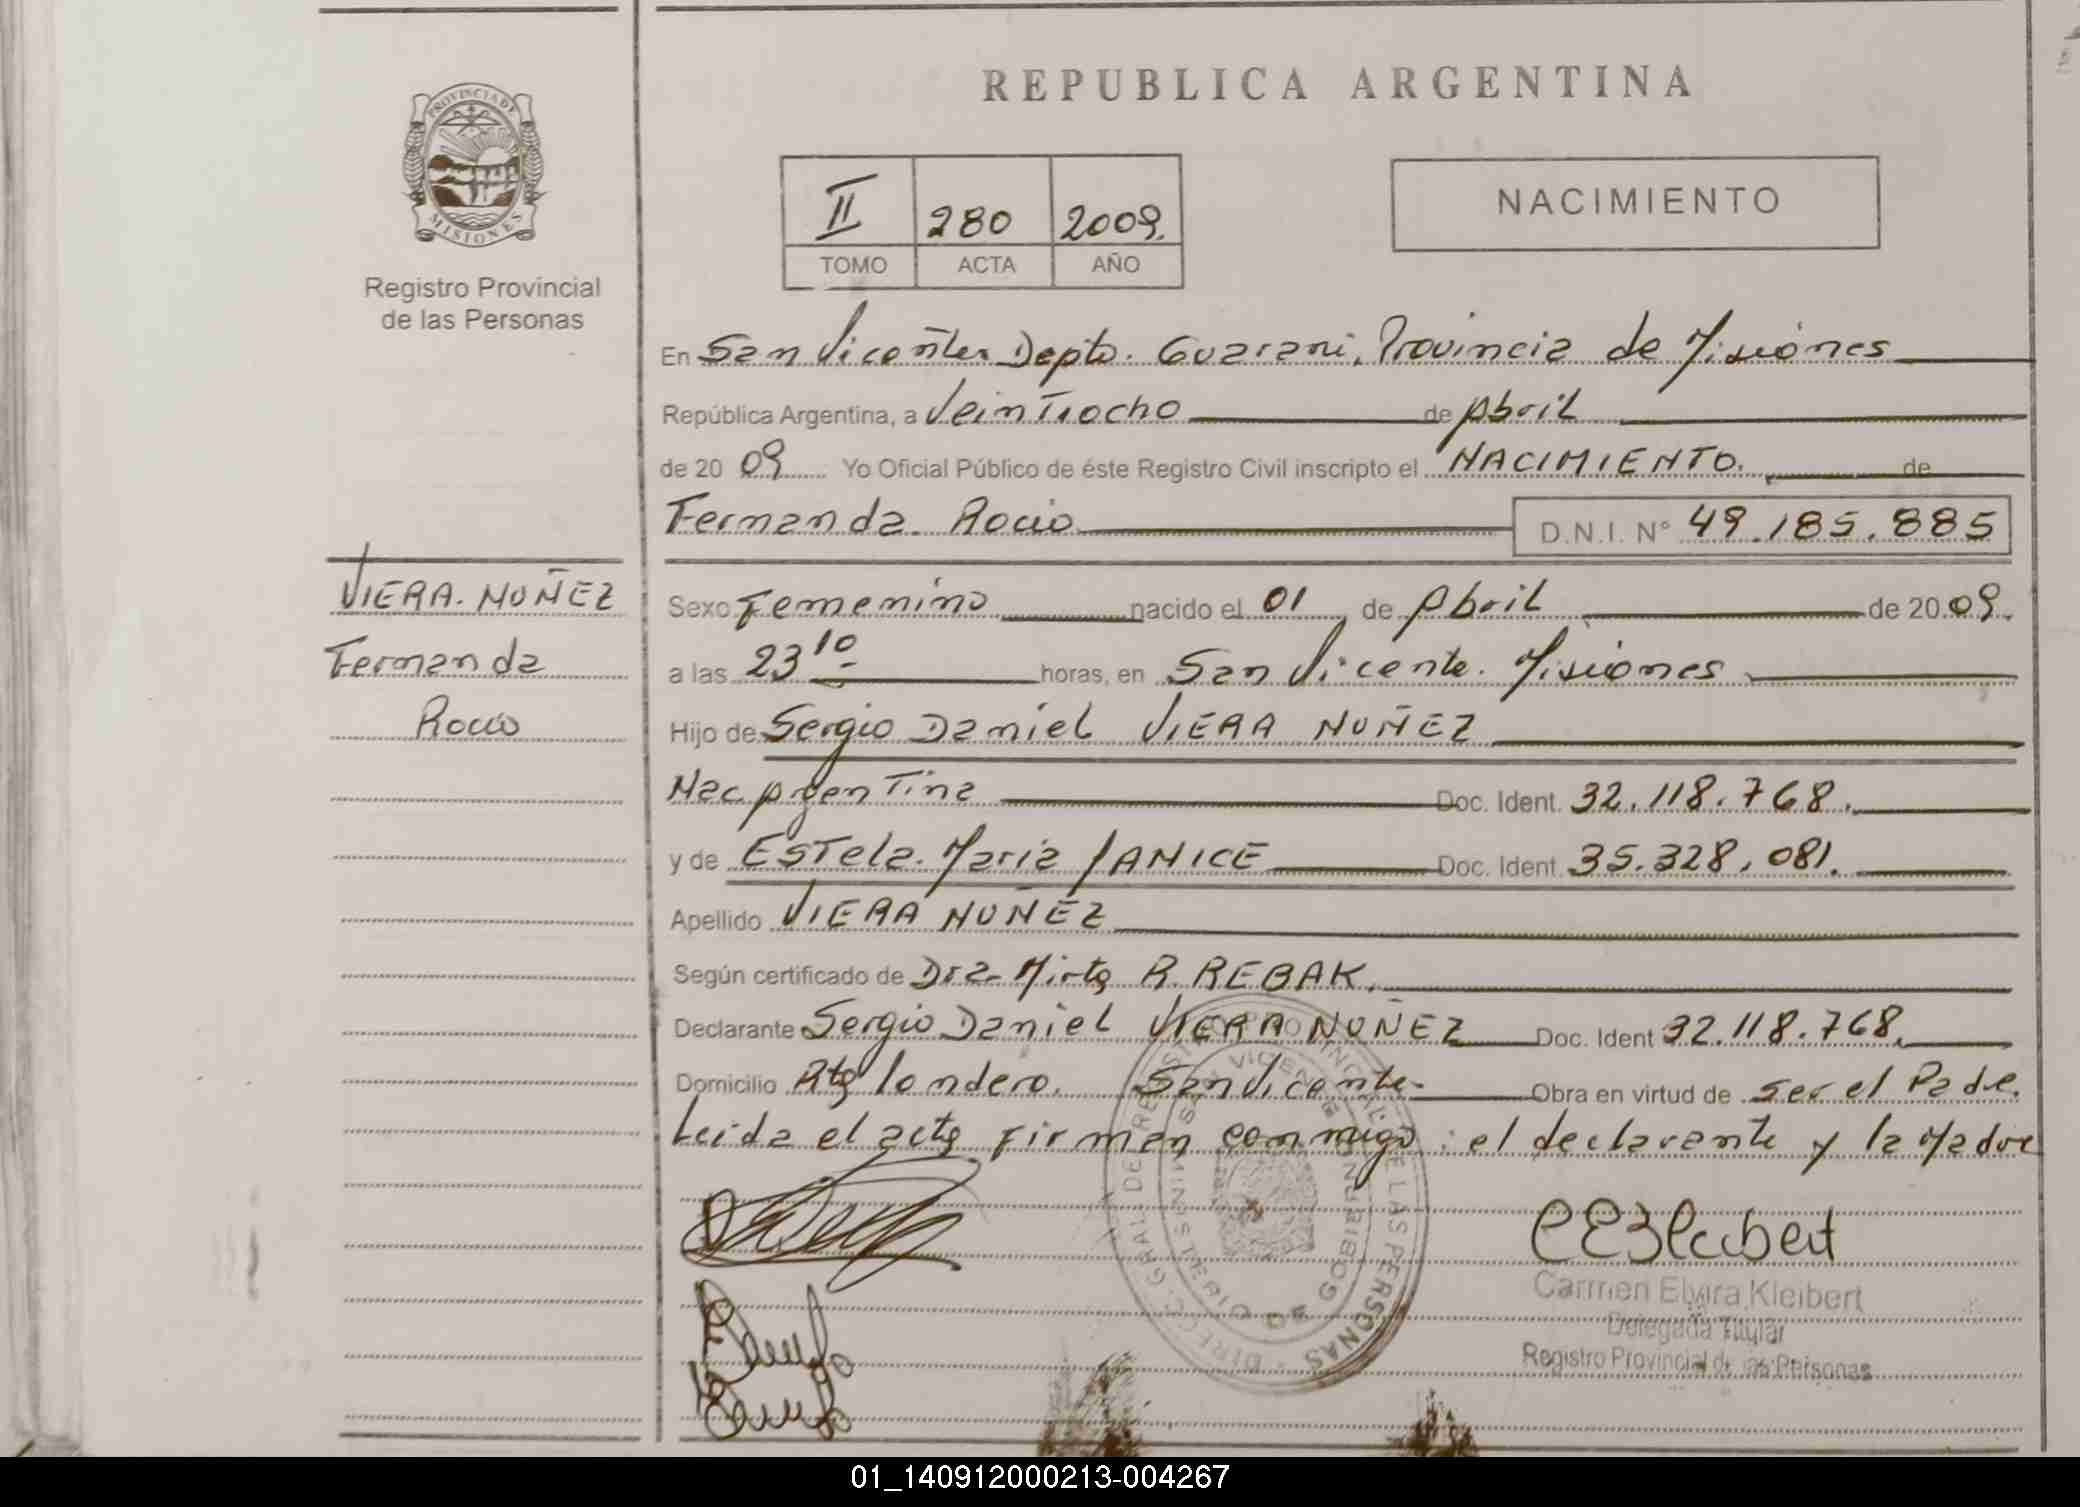 REPUBLICA ARGENTINA
PROVINCIA DE MISIONES
Registro Provincial
de las Personas
II 280 2009.
TOMO ACTA AÑO
NACIMIENTO
En San Vicente Depto. Guarani, Provincia de Misiones
República Argentina, a Veintiocho de Abril
de 20 09 Yo Oficial Público de éste Registro Civil inscripto el NACIMIENTO. de
Fernanda Rocio D.N.I. Nº 49.185.885
VIERA NUÑEZ
Fernanda
Rocio
Sexo Femenino nacido el 01 de Abril de 20 09.
a las 23 10 horas, en San Vicente. Misiones
Hijo de Sergio Daniel VIERA NUÑEZ
Nac. Argentina Doc. Ident. 32.118.768.
y de Estela Maria JANICE Doc. Ident. 35.328.081.
Apellido VIERA NUÑEZ
Según certificado de Dra. Mirta R. REBAK.
Declarante Sergio Daniel VIERA NUÑEZ Doc. Ident 32.118.768.
Domicilio Rta Londero. San Vicente. Obra en virtud de ser el Padre.
Leida el acta firman conmigo: el declarante y la Madre
Carmen Elvira Kleibert
Delegada Titular
Registro Provincial de las Personas
01_140912000213-004267